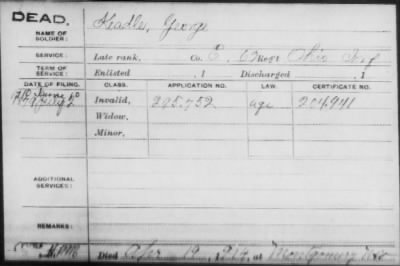 DEAD.
NAME OF SOLDIER: Keadle, George
SERVICE: Late rank, Co. E, 63 Reg't Ohio Inf
TERM OF SERVICE: Enlisted , 1 Discharged , 1
DATE OF FILING. CLASS. APPLICATION NO. LAW. CERTIFICATE NO.
Invalid, 295.752 204.941
Widow,
Minor,
ADDITIONAL SERVICES:
REMARKS:
Died Apr 19 at Montgomery